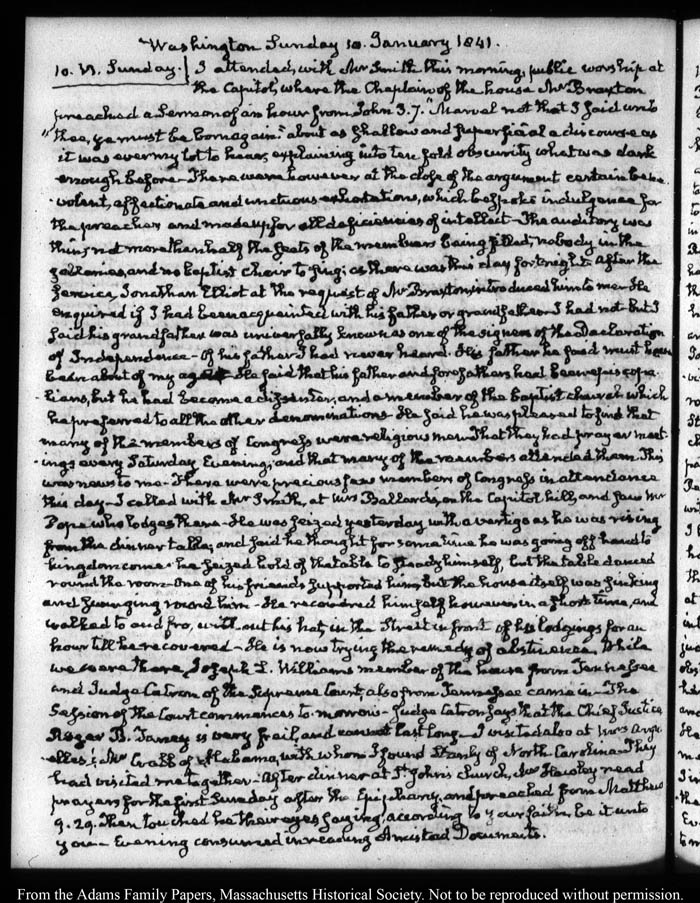 Washington Sunday 10. January 1841.
10. VI. Sunday. I attended, with Mr Smith this morning, public worship at
the Capitol, where the Chaplain of the house Mr Braxton
preached a Sermon of an hour from John 3. 7. "Marvel not that I said unto
"thee, ye must be born again." about as shallow and superficial a discourse as
it was ever my lot to hear, explaining into ten fold obscurity what was dark
enough before. There were however at the close of the argument certain bene-
-volent, affectionate and unctuous exhortations, which bespoke indulgence for
the preacher and made up for all deficiencies of intellect. The auditory was
thin; not more than half the seats of the members being filled, nobody in the
galleries, and no baptist choir to sing; as there was this day fortnight. After the
service Jonathan Elliot at the request of Mr Braxton introduced him to me. He
enquired if I had been acquainted with his father or grandfather. I had not. but I
said his grandfather was universally known as one of the signers of the Declaration
of Independence. Of his father I had never heard. His father he said must have
been about of my age. He said that his father and forefathers had been episcopa-
lians, but he had become a dissenter, and a member of the baptist church which
he preferred to all the other denominations. He said he was pleased to find that
many of the members of Congress were religious men. That they had prayer meet-
-ings every Saturday Evening; and that many of the members attended them. This
was news to me. There were precious few members of Congress in attendance
this day. I called with Mr Smith, at Mrs Ballard's, on the Capitol hill, and saw Mr
Pope who lodges there. He was seized yesterday with a vertigo as he was rising
from the dinner table, and said he thought for some time he was going off hand to
kingdom come. he seized hold of the table to steady himself, but the table danced
round the room. One of his friends supported him, but the house itself was sinking
and swinging round him. He recovered himself however in a short time, and
walked to and fro, without his hat, in the Street in front of his lodgings for an
hour till he recovered. He is now trying the remedy of abstinence. While
we were there, Joseph L. Williams member of the house from Tennessee
and Judge Catron of the Supreme Court, also from Tennessee came in. The
Session of the Court commences to-morrow. Judge Catron says that the Chief Justice
Roger B. Taney is very frail, and cannot last long. I visited also at Mrs
Mr Crabb of Alabama, with whom I found Stanly of North-Carolina. They
had visited me together. After dinner at St. John's church, Mr Hawley read
prayers for the first Sunday after the Epiphany, and preached from Matthew
9. 29. Then touched he their eyes saying, according to your faith, be it unto
you. Evening consumed in reading Amistad Documents.
From the Adams Family Papers, Massachusetts Historical Society. Not to be reproduced without permission.